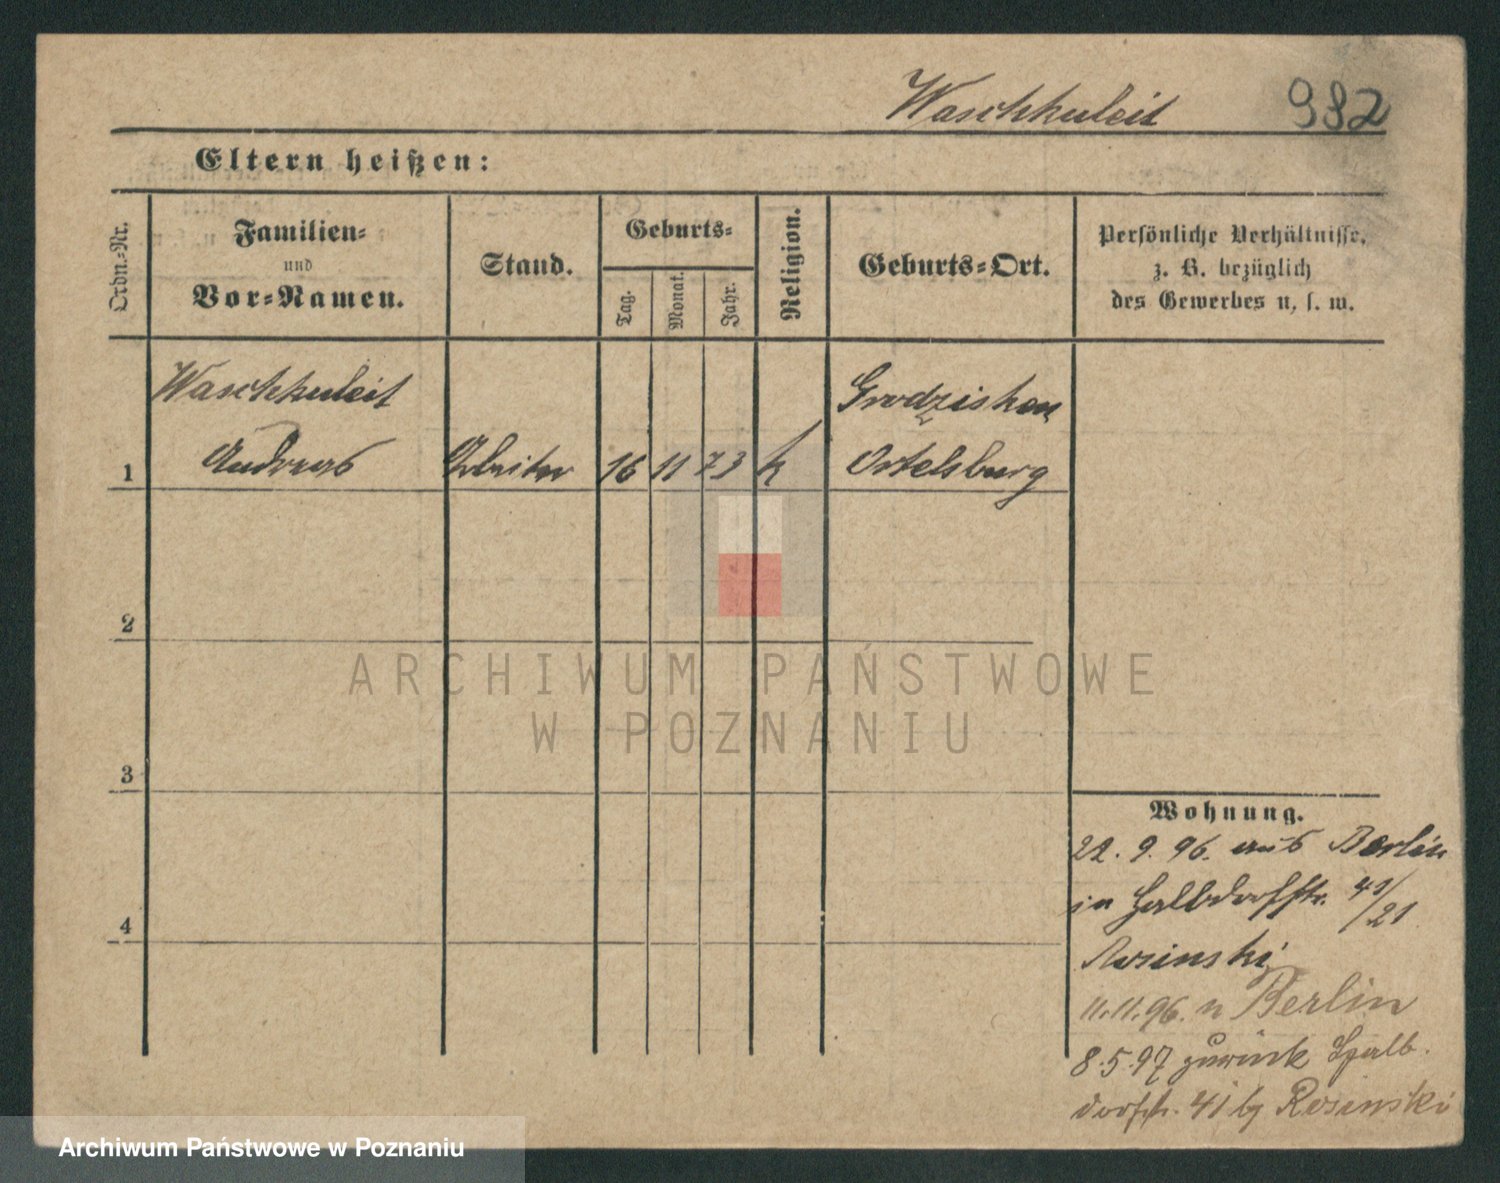 Waschkuleit 982
Eltern heißen:
Ordn.-Nr.
Familien-
und
Vor-Namen.
Stand.
Geburts-
Tag.
Monat.
Jahr.
Religion.
Geburts-Ort.
Persönliche Verhältnisse,
z. B. bezüglich
des Gewerbes u. s. w.
Waschkuleit
Grodzisken
1 Andreas Arbeiter 16 11 73 k Ortelsburg
2
3
4
Wohnung.
22. 9. 96. aus Berlin
in Halbdorfstr. 41/21
Rosinski
11.11.96. n Berlin
8.5.97 zurück Halb-
dorfstr. 41 bg Rosinski
ARCHIWUM PAŃSTWOWE
W POZNANIU
Archiwum Państwowe w Poznaniu